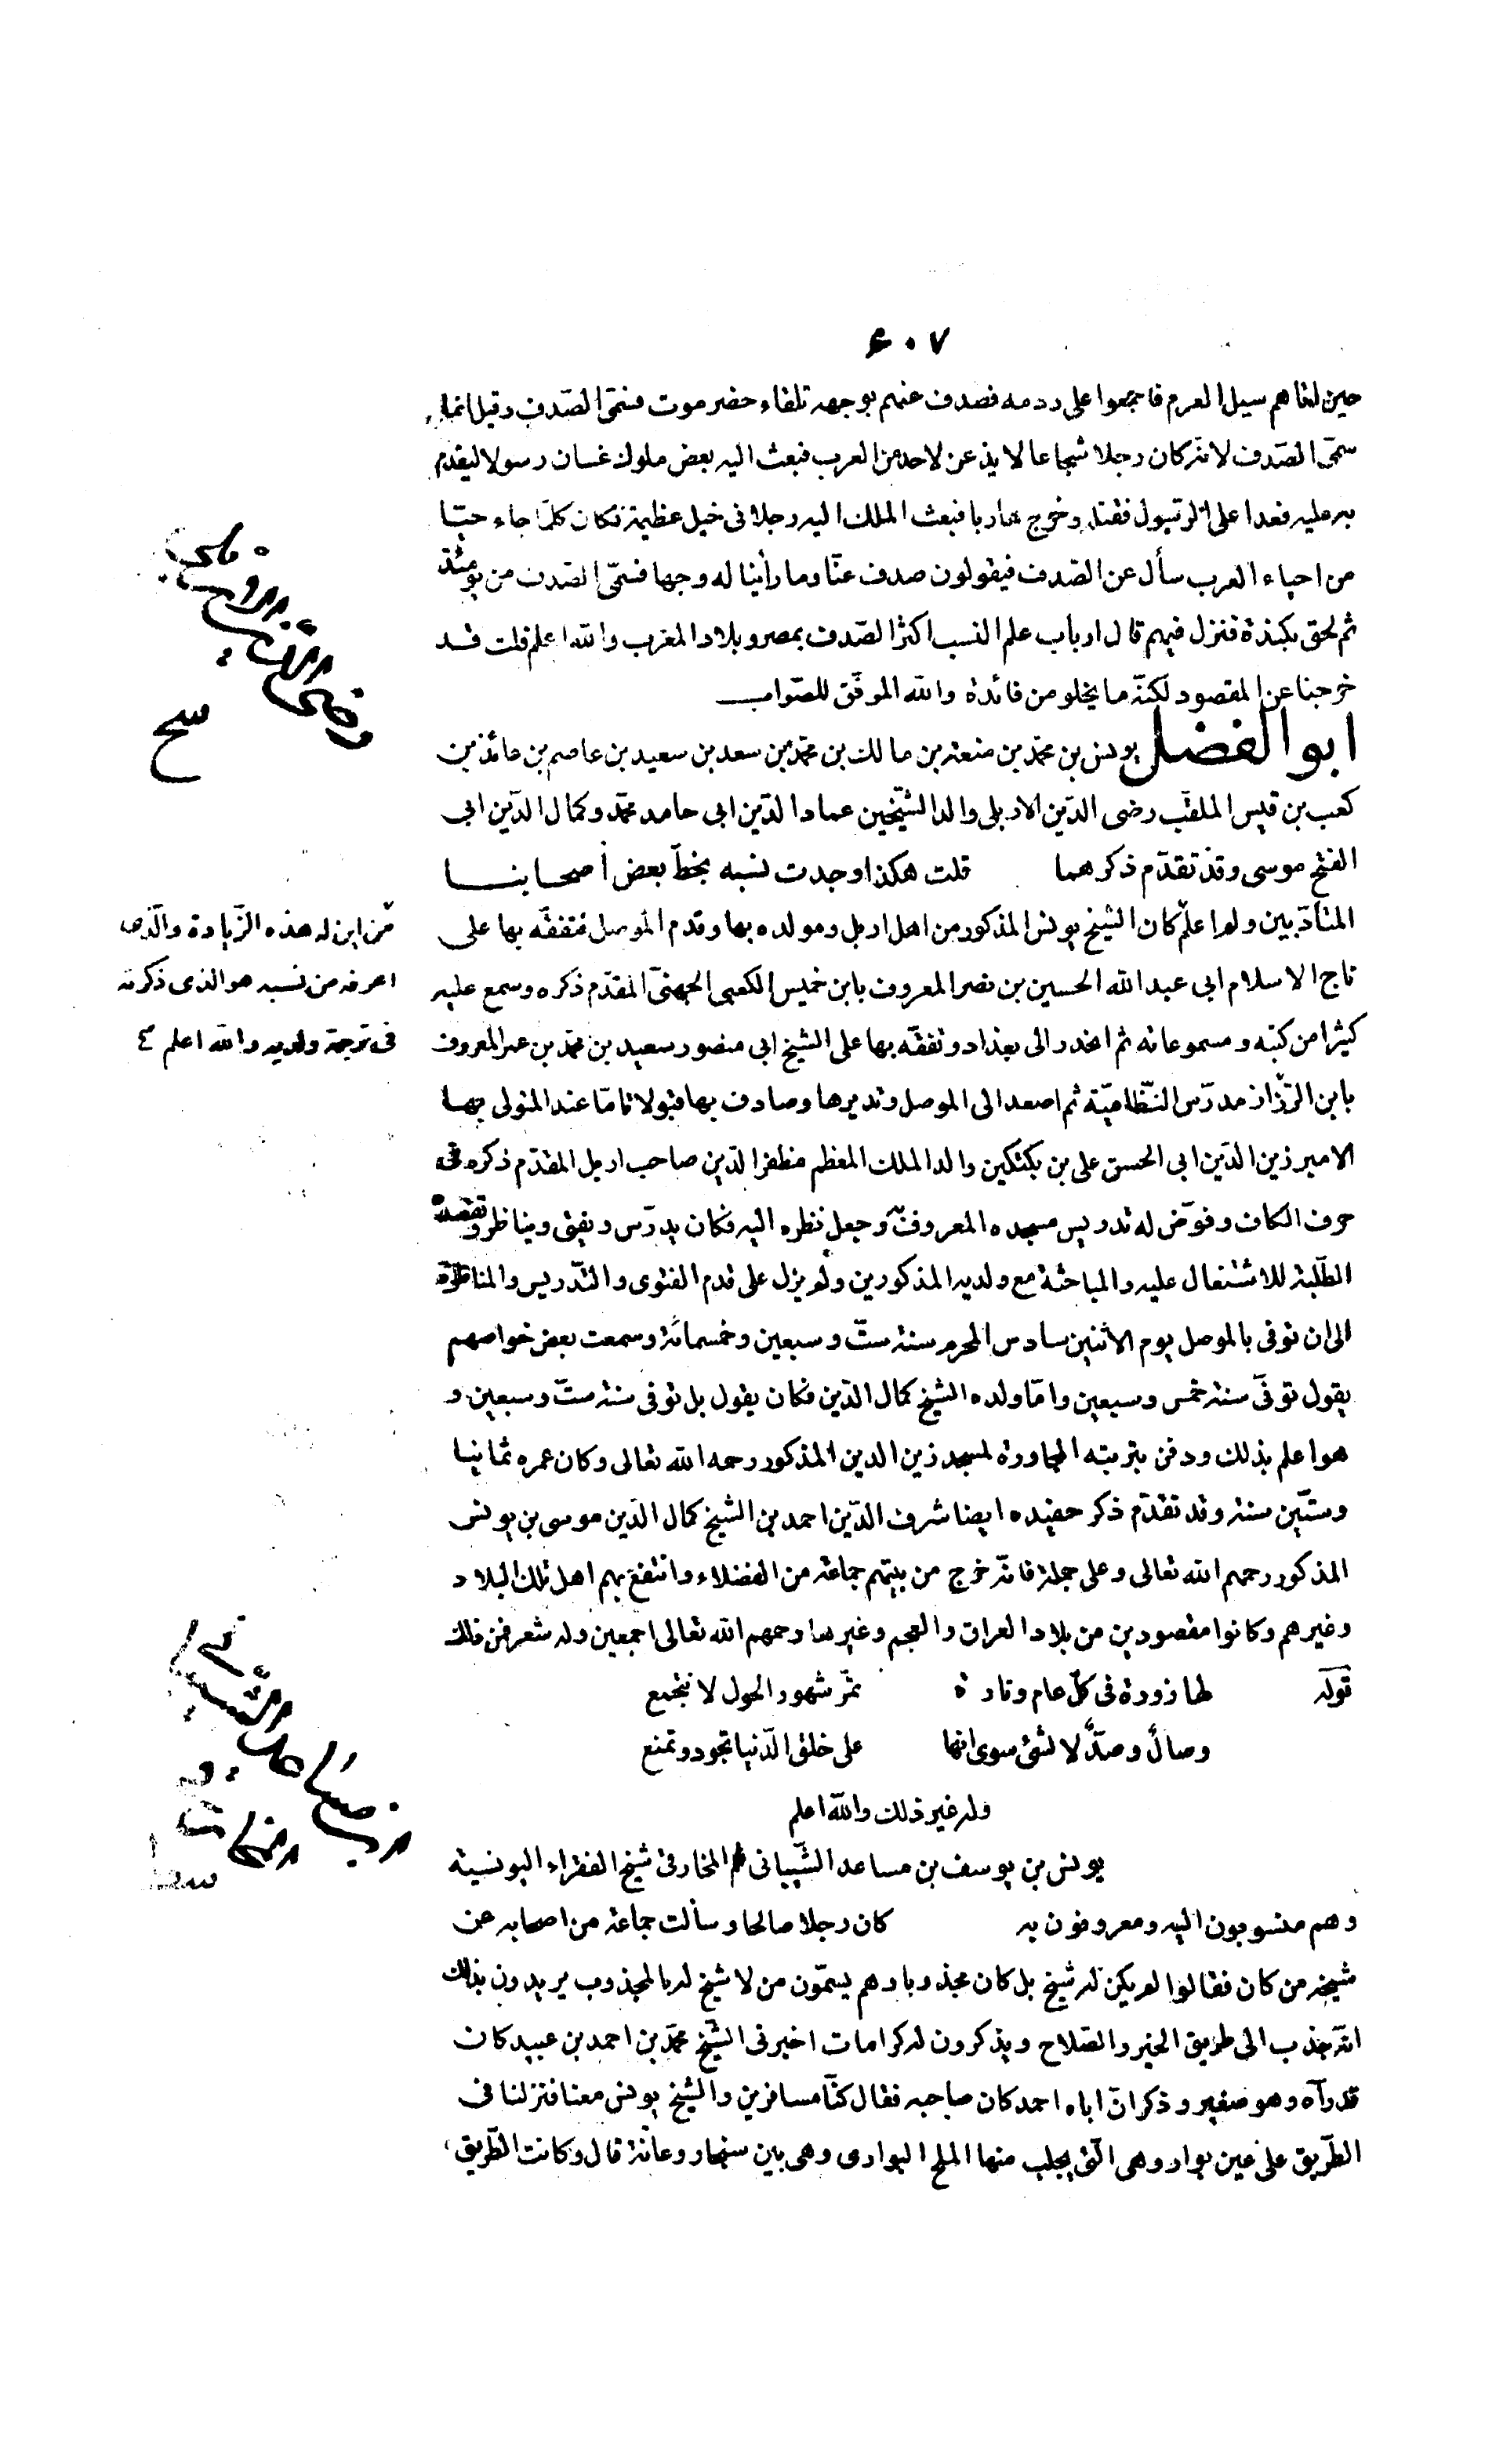 ٦٠٧
حين لقاهم سيل العرم فاجمعوا على ردمه فصدف عنهم بوجهه تلقاء حضرموت فسمّى الصّدف وقيل انما
سمّى الصّدف لانّه كان رجلا شجاعا لا يذعن لاحد من العرب فبعث اليه بعض ملوك غسان رسولا ليقدم
به عليه فعدا على الرّسول فقتله وخرج هاربا فبعث الملك اليه رجلا فى خيل عظيمة فكان كلّما جاء حيّا
من احياء العرب سأل عن الصّدف فيقولون صدف عنّا وما رأينا له وجها فسمّى الصّدف من يومئذ
ثم لحق بكندة فنزل فيهم قال ارباب علم النسب اكثر الصّدف بمصر وبلاد المغرب والله اعلم قلت قد
خرجنا عن المقصود لكنّه ما يخلو من فائدة والله الموفّق للصّواب
ابو الفضل يونس بن محمّد بن منعة بن مالك بن محمّد بن سعد بن سعيد بن عاصم بن عائذ بن
كعب بن قيس الملقّب رضى الدّين الاربلى والد الشّيخين عماد الدّين ابى حامد محمّد وكمال الدّين ابى
الفتح موسى وقد تقدّم ذكرهما قلت هكذا وجدت نسبه بخطّ بعض أصحابنا
المتأدّبين ولم اعلم كان الشيخ يونس المذكور من اهل اربل ومولده بها وقدم الموصل فتفقّه بها على
تاج الاسلام ابى عبد الله الحسين بن نصر المعروف بابن خميس الكعبى الجهنىّ المقدّم ذكره وسمع عليه
كثيرا من كتبه ومسموعاته ثم انحدر الى بغداد وتفقّه بها على الشيخ ابى منصور سعيد بن محمّد بن عمر المعروف
بابن الرّزّاز مدرّس النّظاميّة ثم اصعد الى الموصل وتديرها وصادف بها قبولا تامّا عند المتولى بها
الامير زين الدّين ابى الحسن على بن بكتكين والد الملك المعظم مظفر الدّين صاحب اربل المقدّم ذكره فى
حرف الكاف وفوّض له تدريس مسجده المعروف به وجعل نظره اليه فكان يدرّس ويفتى ويناظر وتقصده
الطّلبة للاشتغال عليه والمباحثة مع ولديه المذكورين ولم يزل على قدم الفتوى والتّدريس والمناظرة
الى ان توفى بالموصل يوم الاثنين سادس المحرم سنة ستّ وسبعين وخمسمائة وسمعت بعض خواصهم
يقول توفّى سنة خمس وسبعين وامّا ولده الشيخ كمال الدّين فكان يقول بل توفى سنة ستّ وسبعين و
هو اعلم بذلك ودفن بتربته المجاورة لمسجد زين الدين المذكور رحمه الله تعالى وكان عمره ثمانيا
وستّين سنة وقد تقدّم ذكر حفيده ايضا شرف الدّين احمد بن الشيخ كمال الدّين موسى بن يونس
المذكور رحمهم الله تعالى وعلى جملة فانّه خرج من بيتهم جماعة من الفضلاء وانتفع بهم اهل تلك البلاد
وغيرهم وكانوا مقصودين من بلاد العراق والعجم وغيرها رحمهم الله تعالى اجمعين وله شعر فمن ذلك
قوله لها زورة فى كلّ عام وتارة تمرّ شهور الحول لا تتجمع
وصالٌ وصدٌّ لا لشئ سوى انها على خلق الدّنيا تجود وتمنع
وله غير ذلك والله اعلم
يونس بن يوسف بن مساعد الشّيبانى ثم المخارقى شيخ الفقراء اليونسية
وهم منسوبون اليه ومعروفون به كان رجلا صالحا وسألت جماعة من اصحابه عن
شيخه من كان فقالوا لم يكن له شيخ بل كان مجذوبا وهم يسمّون من لا شيخ له بالمجذوب يريدون بذلك
انّه جذب الى طريق الخير والصّلاح ويذكرون له كرامات اخبرنى الشّيخ محمّد بن احمد بن عبيد كان
قد رآه وهو صغير وذكر انّ اباه احمد كان صاحبه فقال كنّا مسافرين والشيخ يونس معنا فنزلنا فى
الطّريق على عين بوار وهى الّتى يجلب منها الملح البوارى وهى بين سنجار وعانة قال وكانت الطّريق
من اين له هذه الزّيادة والّذى
اعرفه من نسبه هو الذى ذكرته
فى ترجمة ولديه والله اعلم